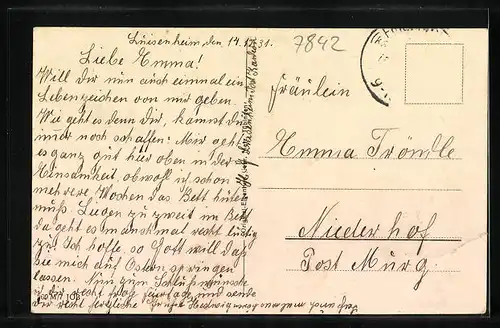 Luisenheim, den 14.12.31.
Liebe Emma!
Will dir nun auch einmal ein
Lebenzeichen von mir geben.
Wie geht es denn dir, kannst du
immer noch schaffen? Mir geht
es ganz gut hier oben in der
Einsamkeit obwohl ich schon
mehrere Wochen das Bett hüten
muß. Liegen zu zweit im Bett
da geht es manchmal recht lustig
zu. Ich hoffe, so Gott will daß
sie mich auf Ostern springen
lassen. Nun zum Schluß wünsche
ich dir recht frohe Feiertage und sende
dir recht herzliche Grüße Hedwig
7842
Fräulein
Emma Tröndle
Niederhof
Post Murg.